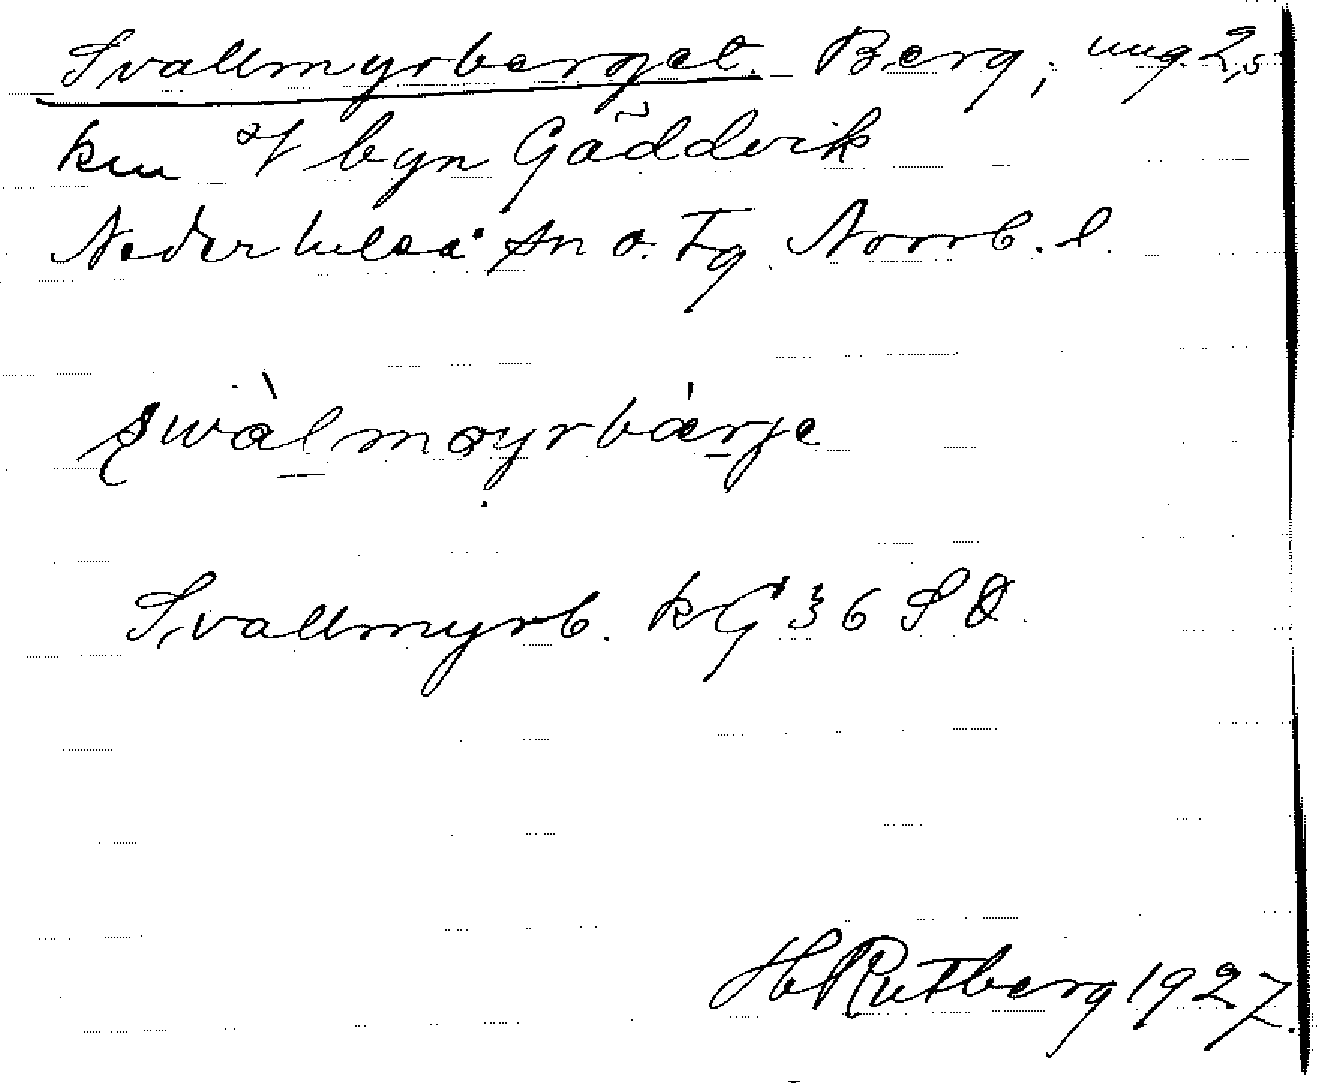 Svallmyrberget. Berg, ung. 2,5
km v byn Gäddvik
Nederluleå sn o. Tg. Norrb. l.
swàlmøyrbárje
Svallmyrb. kG 36 SO
H Rutberg 1927.